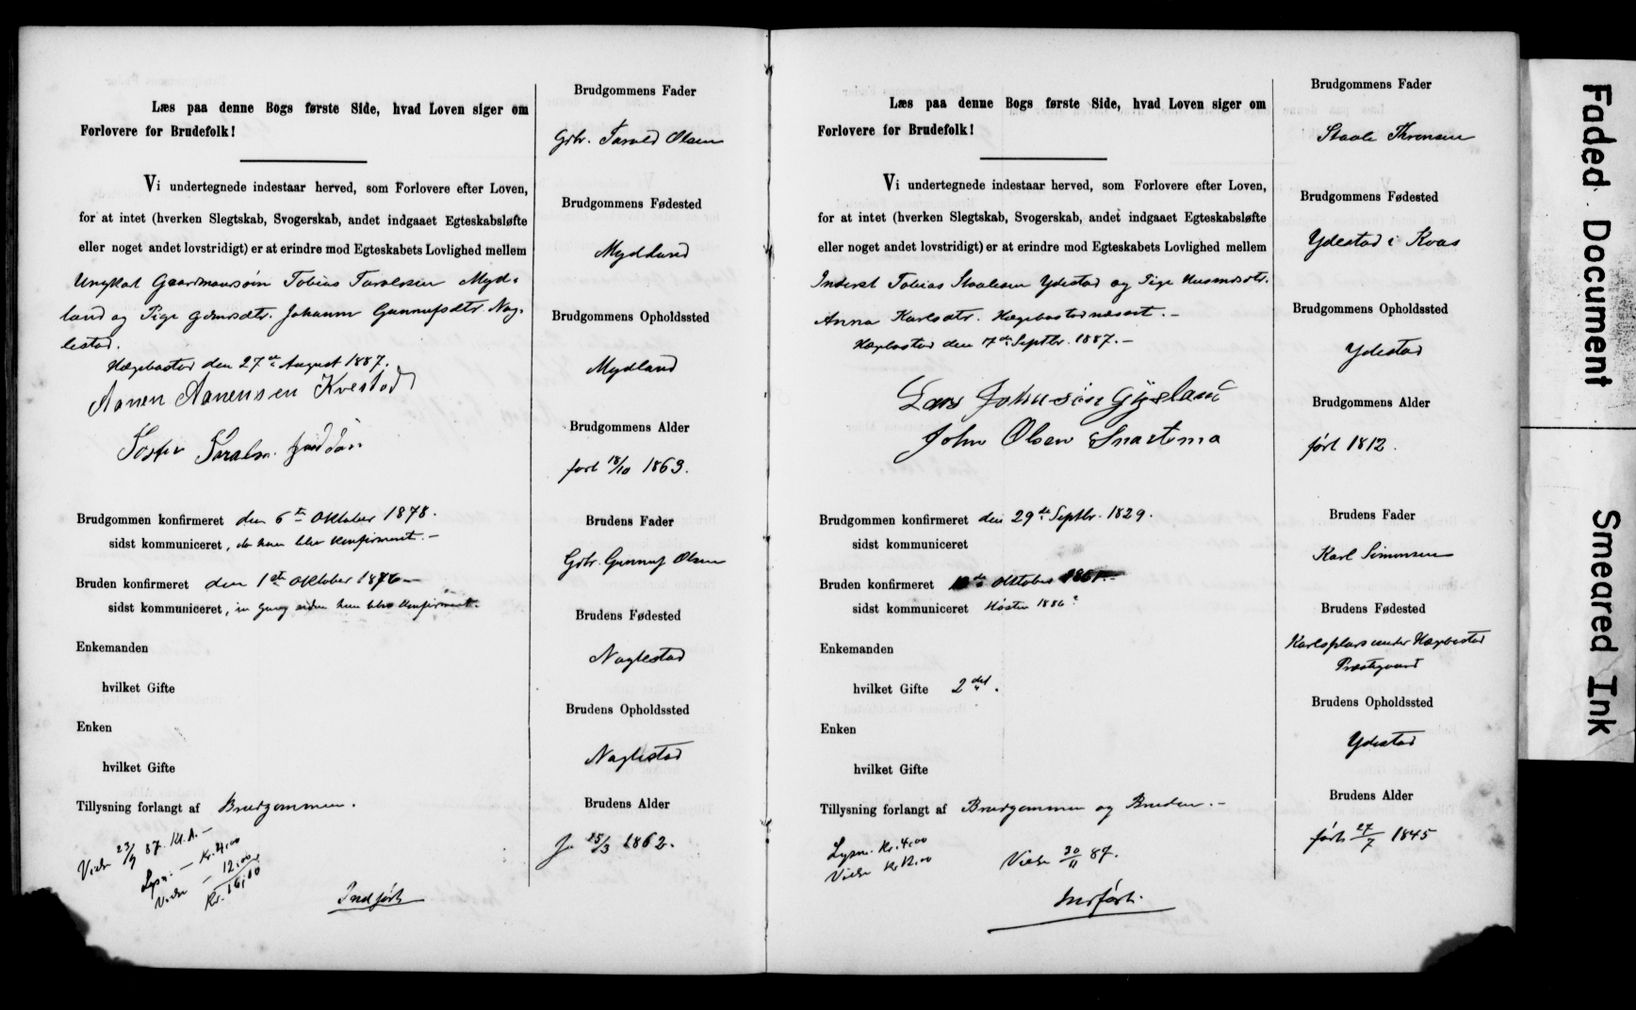 Læs paa denne Bogs første Side, hvad Loven siger om
Forlovere for Brudefolk!
Vi undertegnede indestaar herved, som Forlovere efter Loven,
for at intet (hverken Slegtskab, Svogerskab, andet indgaaet Egteskabsløfte
eller noget andet lovstridigt) er at erindre mod Egteskabets Lovlighed mellem
Ungkal Gaardmandssøn Tobias Taraldsen Myd-
land og Pige Gdmdsdtr. Johanne Gunnufsdtr. Nag-
lestad.
Hægebostad den 27de August 1887.
Aanen Aanensen Kvestad
Brudgommen konfirmeret den 6te Oktober 1878.
sidst kommuniceret, da han blev konfirmeret.-
Bruden konfirmeret den 1ste Oktober 1876-
sidst kommuniceret, en Gang siden hun blev konfirmeret.
Enkemanden
hvilket Gifte
Enken
hvilket Gifte
Tillysning forlangt af Brudgommen.
Viede 23/9 87. Kl. A.-
Lysn. - Kr. 4,00
Vielse - 12,00
Kr. 16,00
Indført
Brudgommens Fader
Gbr. Tarald Olsen
Brudgommens Fødested
Mydland
Brudgommens Opholdssted
Mydland
Brudgommens Alder
født 18/10 1863.
Brudens Fader
Gbr. Gunnuf Olsen
Brudens Fødested
Naglestad
Brudens Opholdssted
Naglestad
Brudens Alder
f. 25/3 1862.
Læs paa denne Bogs første Side, hvad Loven siger om
Forlovere for Brudefolk!
Vi undertegnede indestaar herved, som Forlovere efter Loven,
for at intet (hverken Slegtskab, Svogerskab, andet indgaaet Egteskabsløfte
eller noget andet lovstridigt) er at erindre mod Egteskabets Lovlighed mellem
Inderst Tobias Staalesen Ydestad og Pige Husmdsdtr.
Anna Karlsdtr. Hægebostadneset.-
Hægbostad den 17de Septbr. 1887.-
Lars Johnsøn Gysland
John Olsen Snartemo
Brudgommen konfirmeret den 29de Septbr. 1829.
sidst kommuniceret
Bruden konfirmeret Oktober
sidst kommuniceret Høsten 1886?
Enkemanden
hvilket Gifte 2det.
Enken
hvilket Gifte
Tillysning forlangt af Brudgommen og Bruden.-
Lysn. Kr. 4,00
Vielse Kr 12,00
Viede 30/11 87.
Indført.
Brudgommens Fader
Staale Thronsen
Brudgommens Fødested
Ydestad i Kvas
Brudgommens Opholdssted
Ydestad
Brudgommens Alder
født 1812.
Brudens Fader
Karl Simonsen
Brudens Fødested
Karlsplads under Hægbostad
Præstegaard
Brudens Opholdssted
Ydestad
Brudens Alder
født 27/7 1845
Faded Document
Smeared Ink